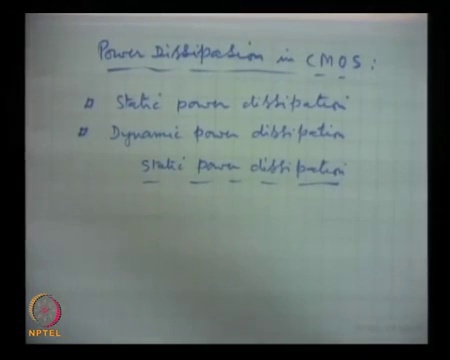 Power Dissipation in CMOS :
Static power dissipation
Dynamic power dissipation
static power dissipation
NPTEL